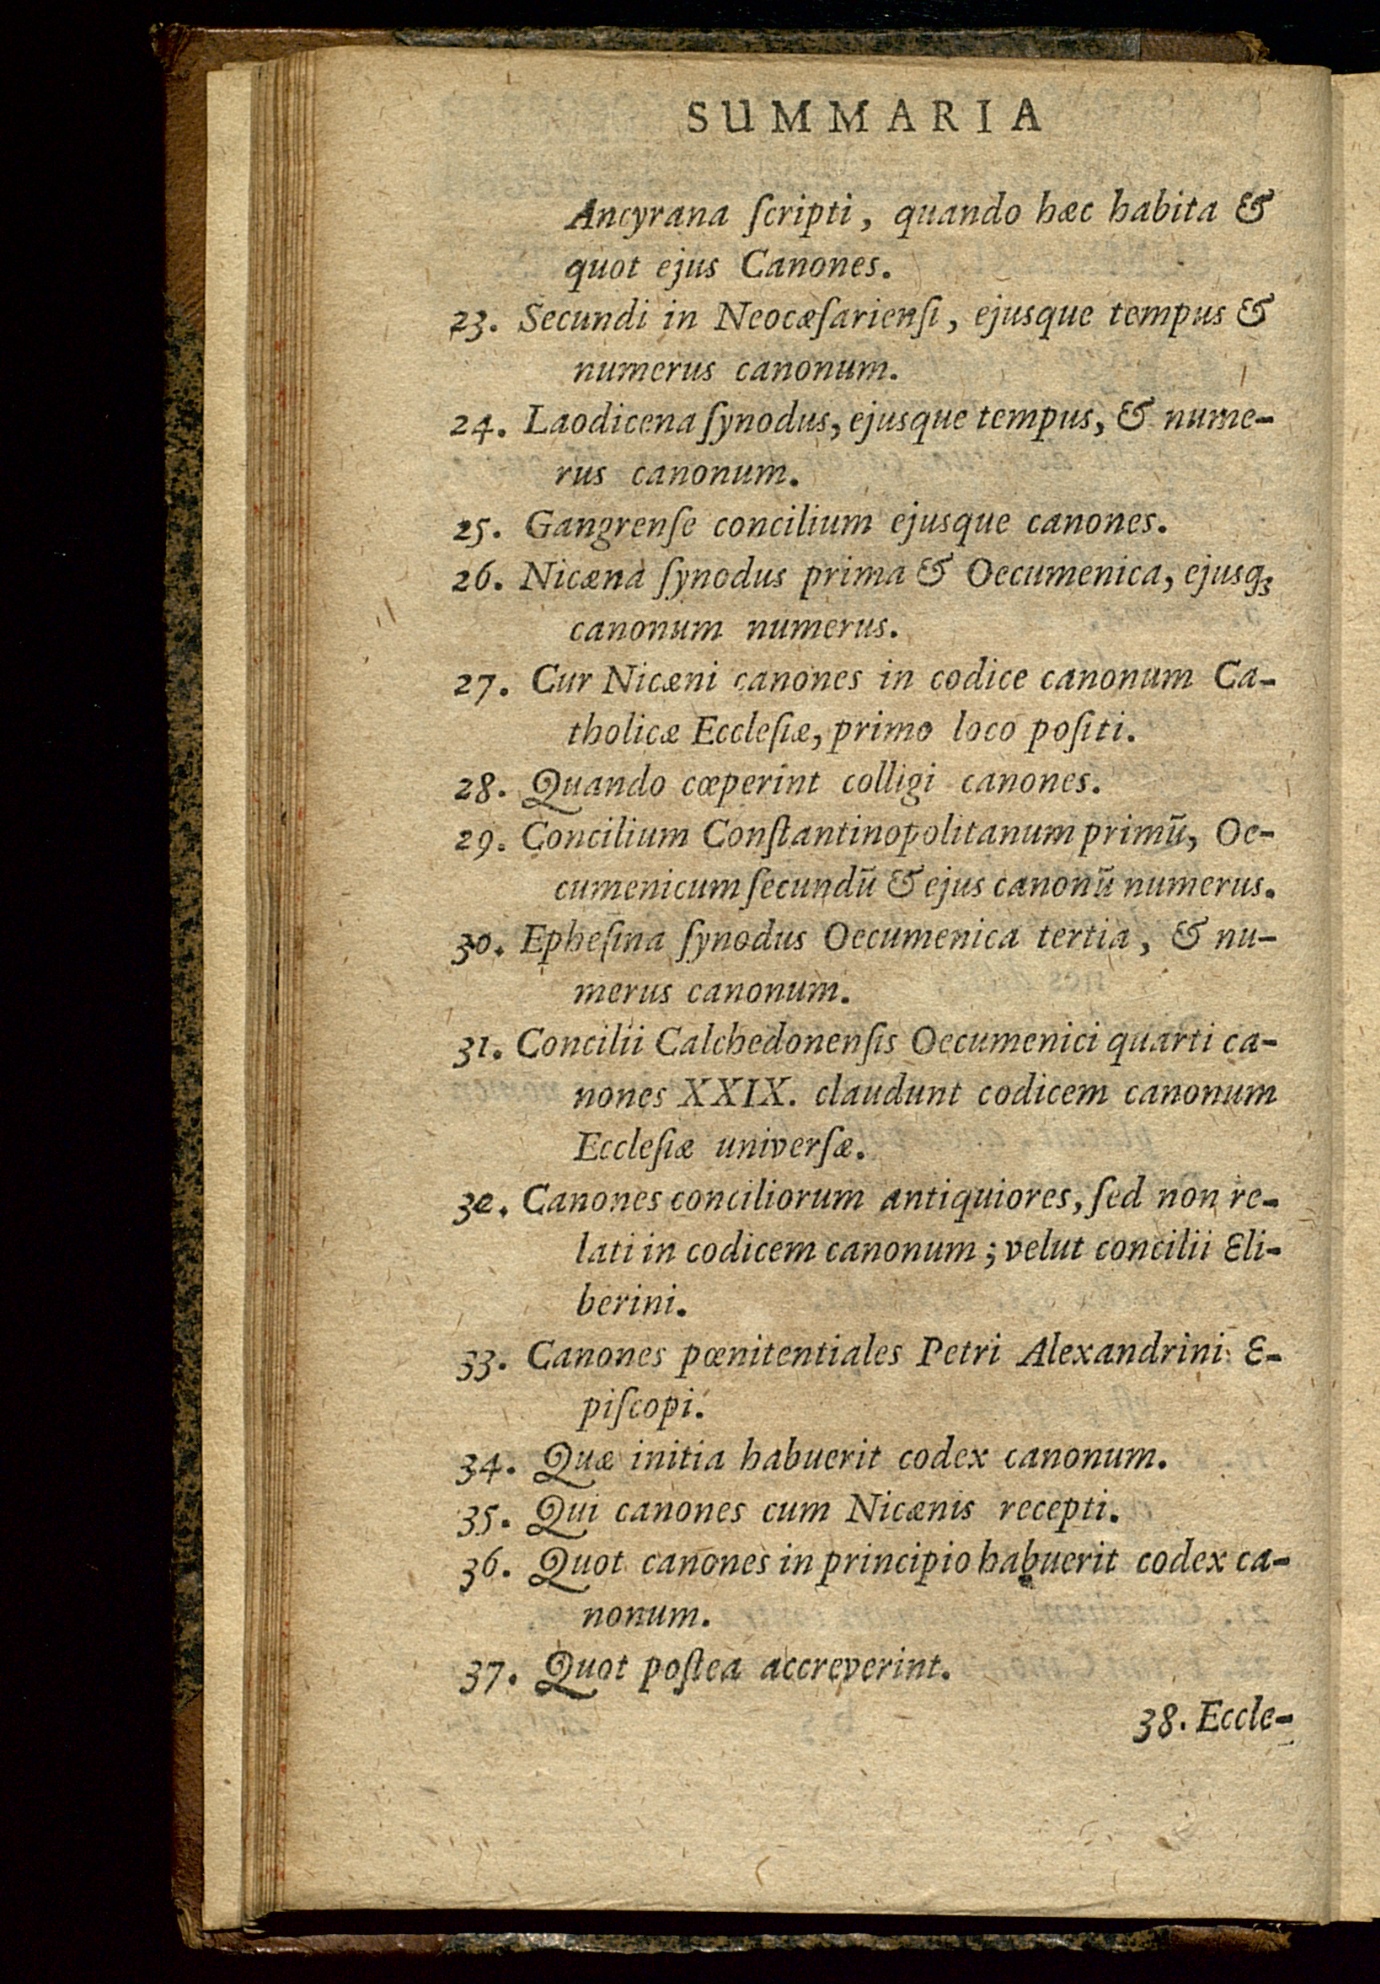 SUMMARIA
Ancyrana ſcripti, quando hæc habita &
quot ejus Canones.
23. Secundi in Neocæſarienſi, ejusque tempus &
numerus canonum.
24. Laodicena ſynodus, ejusque tempus, & nume-
rus canonum.
25. Gangrenſe concilium ejusque canones.
26. Nicæna ſynodus prima & Oecumenica, ejusq;
canonum numerus.
27. Cur Nicæni canones in codice canonum Ca-
tholicæ Eccleſiæ, primo loco poſiti.
28. Quando cœperint colligi canones.
29. Concilium Conſtantinopolitanum primū, Oe-
cumenicum ſecundū & ejus canonū numerus.
30. Epheſina ſynodus Oecumenica tertia, & nu-
merus canonum.
31. Concilii Calchedonenſis Oecumenici quarti ca-
nones XXIX. claudunt codicem canonum
Eccleſiæ univerſæ.
32. Canones conciliorum antiquiores, ſed non re-
lati in codicem canonum; velut concilii Eli-
berini.
33. Canones pœnitentiales Petri Alexandrini E-
piſcopi.
34. Quæ initia habuerit codex canonum.
35. Qui canones cum Nicænis recepti.
36. Quot canones in principio habuerit codex ca-
nonum.
37. Quot poſtea accreverint.
38. Eccle-